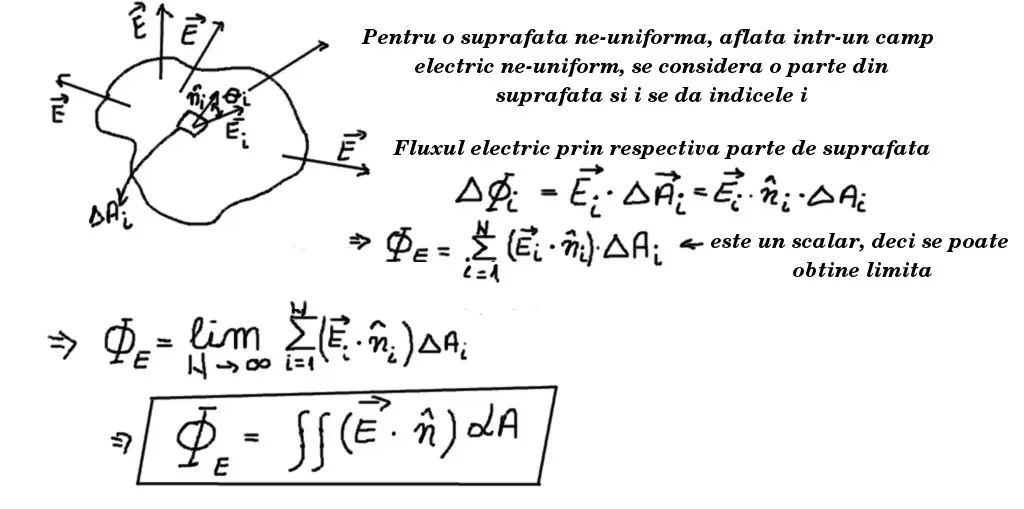 E⃗ E⃗
Pentru o suprafata ne-uniforma, aflata intr-un camp
electric ne-uniform, se considera o parte din
suprafata si i se da indicele i
E⃗ n̂ᵢ θᵢ E⃗ᵢ
E⃗
ΔAᵢ
Fluxul electric prin respectiva parte de suprafata
ΔΦᵢ = E⃗ᵢ · ΔA⃗ᵢ = E⃗ᵢ · n̂ᵢ · ΔAᵢ
⇒ Φ_E = Σ_{i=1}^{N} (E⃗ᵢ · n̂ᵢ) · ΔAᵢ ← este un scalar, deci se poate
obtine limita
⇒ Φ_E = lim_{N→∞} Σ_{i=1}^{N} (E⃗ᵢ · n̂ᵢ) ΔAᵢ
⇒ Φ_E = ∫∫ (E⃗ · n̂) dA